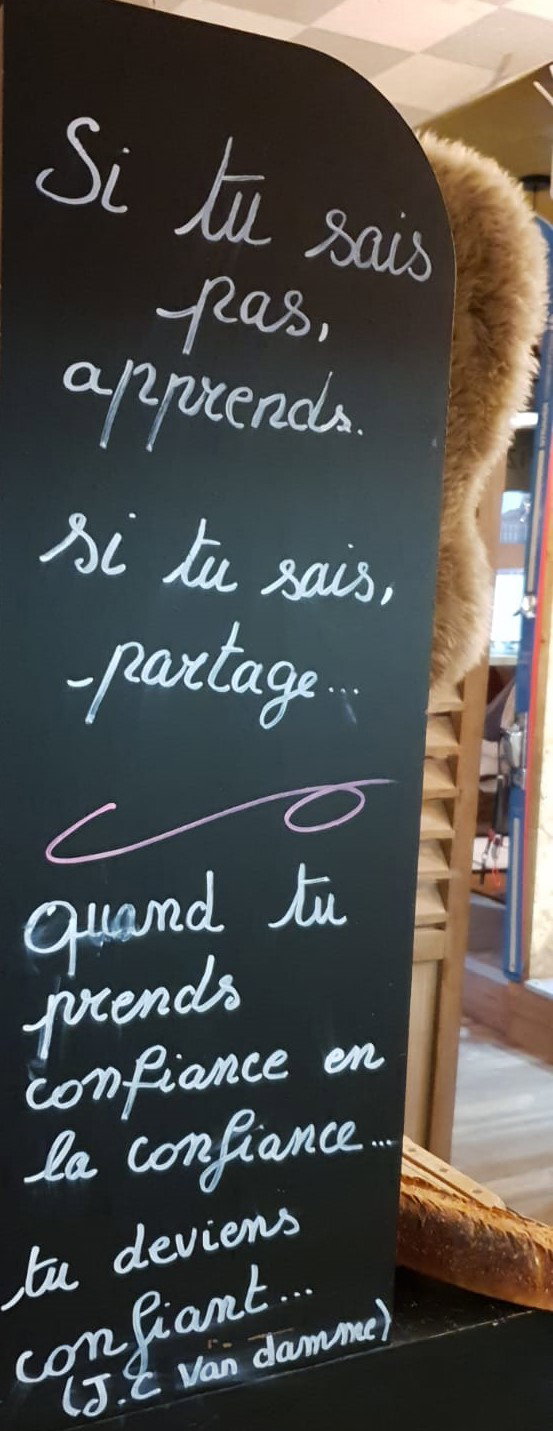 Si tu sais
pas,
apprends.
si tu sais,
partage...
quand tu
prends
confiance en
la confiance...
tu deviens
confiant...
(J.C Van damme)